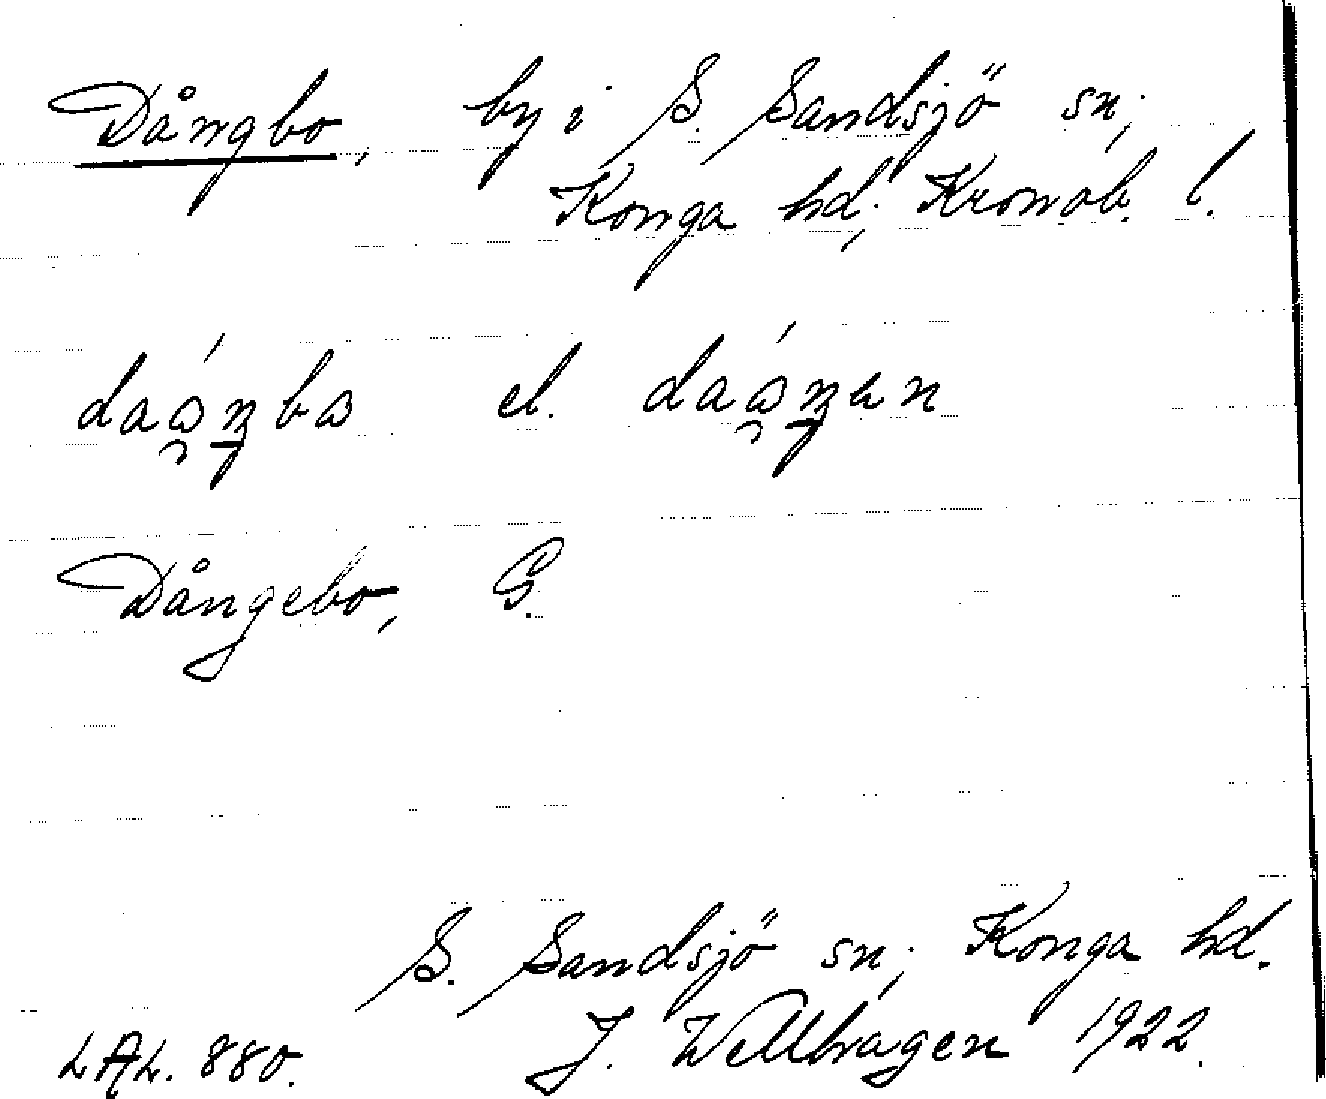 Dångbo, by i S. Sandsjö sn,
Konga hd, Kronob. l.
el.
Dångebo, G.
S. Sandsjö sn, Konga hd.
LAL. 880. J. Wellhagen 1922.